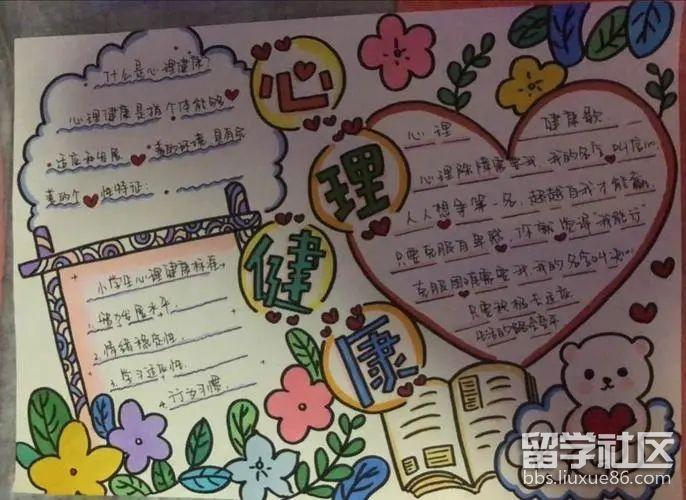 什么是心理健康?
心理健康是指个体能够
适应和发展 善的环境 具有完
美的个性特征:
心
理
健
康
心理 健康歌
心理除障需要我,我的名字叫信心.
人人想争第一名,超越自我才能赢.
只要克服自卑感,你就说译"我能行"
克服困难需要我,我的名字叫
只要积极去适应
生活的路
小学生心理健康标准
1. 智力发展水平
2. 情绪稳定性.
3. 学习适应性.
4. 行为习惯.
留学社区
bbs.liuxue86.com